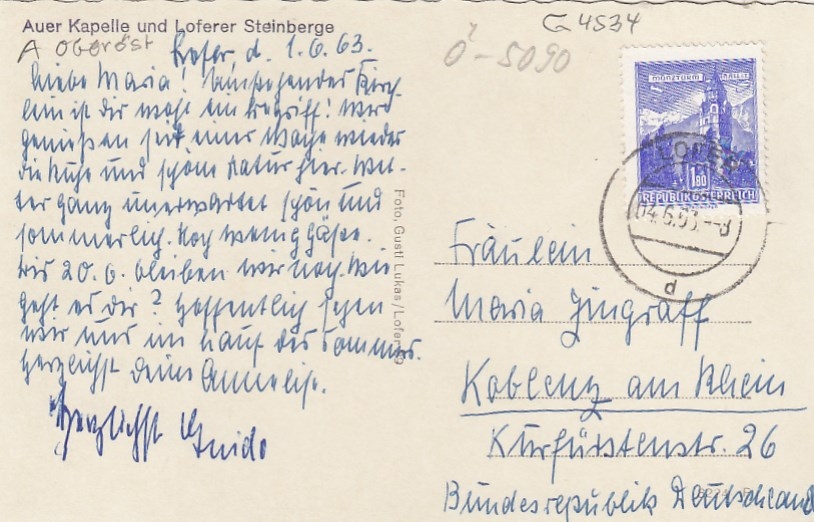 Auer Kapelle und Loferer Steinberge
A Oberöst
G 4534
Ö-5090
Lofer, d. 1.6.63.
Liebe Maria! Umstehendes Kirch-
lein ist dir wohl ein Begriff! Wir
genießen seit einer Woche wieder
die Ruhe und schöne Natur hier. Wet-
ter ganz unerwartet schön und
sommerlich. Noch wenig Gäste.
Bis 20.6. bleiben wir noch. Wie
geht es dir? Hoffentlich sehen
wir uns im Lauf des Sommers.
Herzlichst Deine Annelise.
Herzlichst Guido
Foto, Gustl Lukas/Lofer
MÜNZTURM
REPUBLIK ÖSTERREICH
1.80
LOFER
04.6.63.--8
d
Fräulein
Maria Zingraff
Koblenz am Rhein
Kurfürstenstr. 26
Bundesrepublik Deutschland